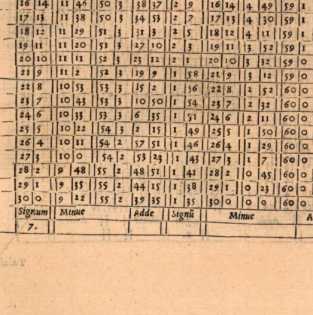 16 14 11 46 50 3 38 37 2 9 16 14 4 49 59 1
17 13 11 38 50 3 34 53 2 7 17 13 4 30 59 1
18 12 11 29 51 3 31 3 2 5 18 12 4 11 59 1
19 11 11 20 51 3 27 10 2 3 19 11 3 52 59 1
20 10 11 11 52 3 23 12 2 1 20 10 3 32 59 0
21 9 11 2 52 3 19 9 1 58 21 9 3 12 59 0
22 8 10 53 53 3 15 2 1 56 22 8 2 52 60 0
23 7 10 43 53 3 10 50 1 54 23 7 2 32 60 0
24 6 10 33 53 3 6 35 1 51 24 6 2 11 60 0
25 5 10 22 54 3 2 15 1 49 25 5 1 50 60 0
26 4 10 11 54 2 57 51 1 46 26 4 1 29 60 0
27 3 10 0 54 2 53 23 1 43 27 3 1 7 60 0
28 2 9 48 55 2 48 51 1 41 28 2 0 45 60 0
29 1 9 35 55 2 44 15 1 38 29 1 0 23 60 0
30 0 9 22 55 2 39 35 1 35 30 0 0 0 60 0
Signum Minue Adde Signū Minue A
7.